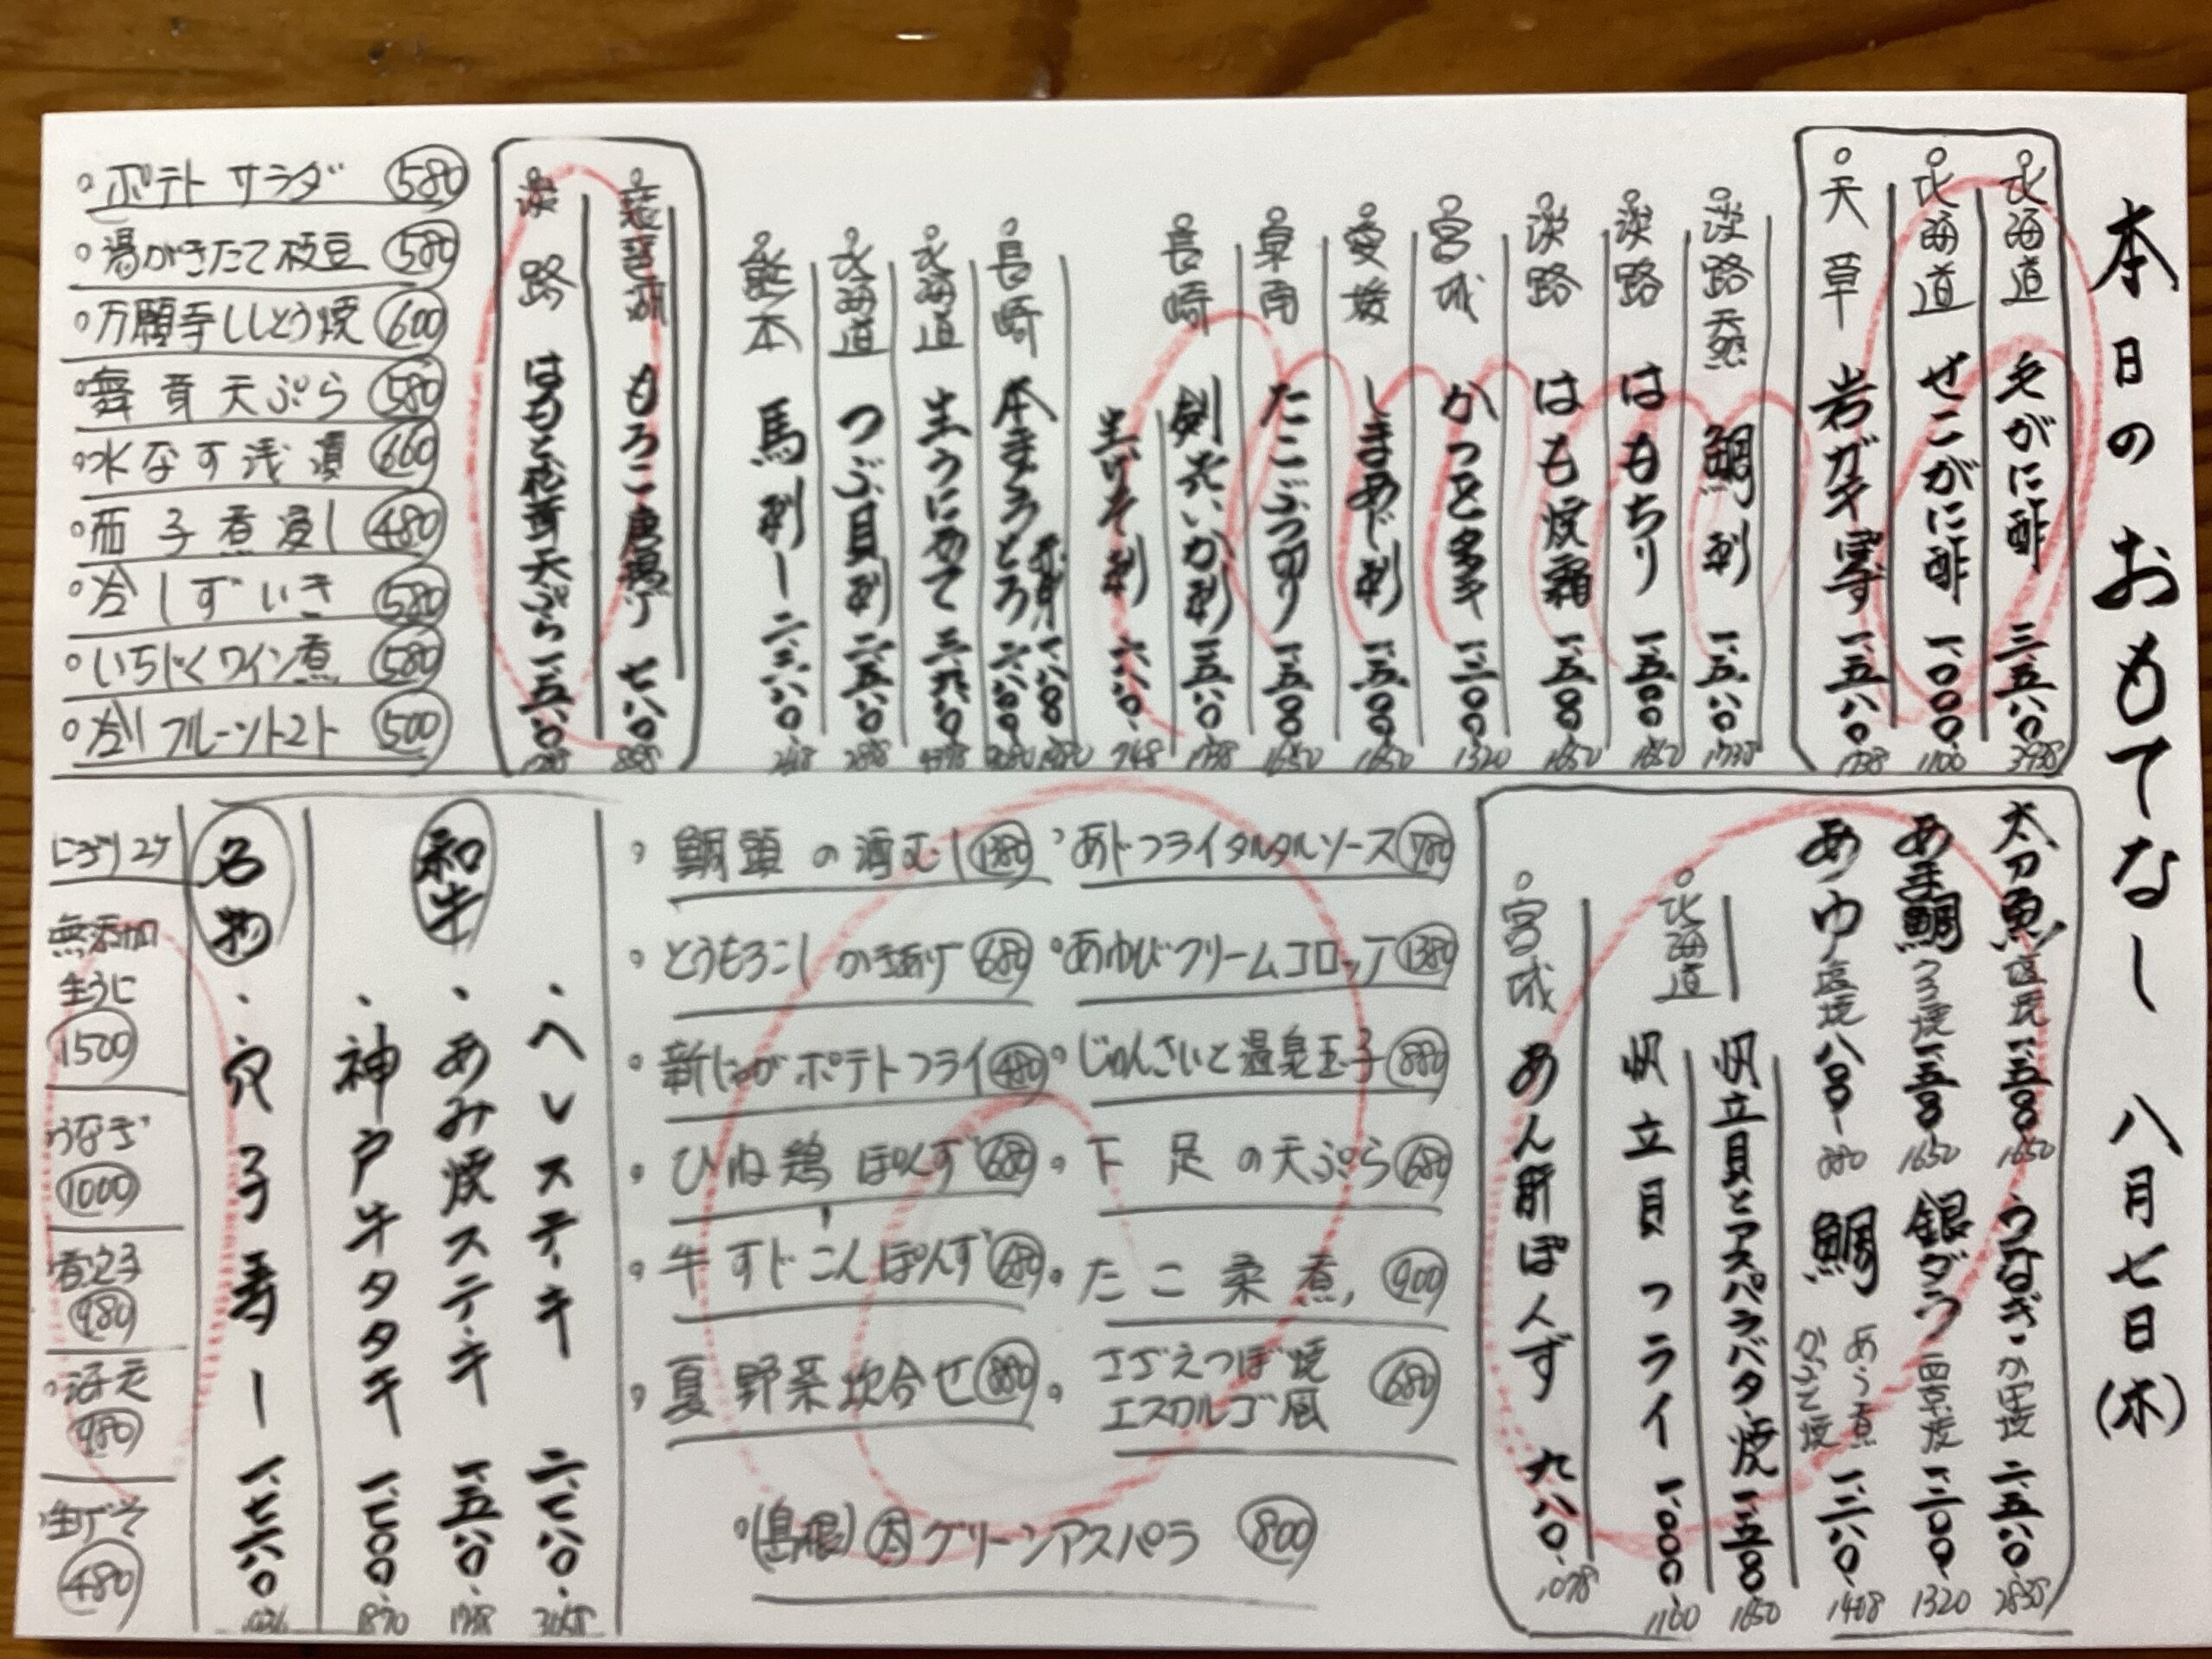 本日のおもてなし 八月七日(木)
北海道 毛がに酢 三、五八〇 3938
北海道 せこがに酢 一、〇〇〇 1100
天草 岩ガキ 一、五八〇 1738
淡路天然 鯛刺 一、五八〇 1738
淡路 はもちり 一、五〇〇 1650
淡路 はも焼霜 一、五〇〇 1650
宮城 かつおタタキ 一、二〇〇 1320
愛媛 しまあじ刺 一、五〇〇 1650
泉南 たこぶつ切り 一、五〇〇 1650
長崎 剣先いか刺 一、五八〇 1738
生げそ刺 六八〇 748
長崎 本まぐろ 赤身 一、八〇〇 1980
とろ 二、八〇〇 3080
北海道 生うに
北海道 つぶ貝刺 二、五八〇 2838
熊本 馬刺し
琵琶湖 もろこ唐揚げ 七八〇 858
淡路 はもと 天ぷら 一、五八〇 1738
・ポテトサラダ 580
・湯がきたて枝豆 580
・万願寺ししとう焼 600
・舞茸天ぷら 580
・水なす浅漬 660
・茄子煮浸し 480
・冷しずいき 580
・いちじくワイン煮 580
・冷しフルーツトマト 500
太刀魚塩焼 一、五〇〇 1650
うなぎ・かば焼 二、五八〇 2838
あま鯛うろこ焼 一、五〇〇 1650
銀ダラ西京焼 一、二〇〇 1320
あゆ塩焼 八〇〇 880
鯛 あら煮 かぶと焼 一、二八〇 1408
北海道 帆立貝とアスパラバター焼 一、五〇〇 1650
帆立貝フライ 一、〇〇〇 1100
宮城 あん肝ぽんず 九八〇 1078
・あじフライタルタルソース 780
・あゆびクリームコロッケ 1380
・じゅんさいと温泉玉子 880
・下足の天ぷら 680
・たこ柔煮 900
・さざえつぼ焼
エスカルゴ風 680
・鯛頭の酒むし 1380
・とうもろこしかき揚げ 680
・新じゃがポテトフライ 480
・ひね鶏ぽんず 680
・牛すじこんぽんず 680
・夏野菜炊合せ 880
・(島根)大グリーンアスパラ 800
和牛
・ヘレステーキ 二、七八〇 3058
・あみ焼ステーキ 一、五八〇 1738
・神戸牛タタキ 一、七〇〇 1870
名物
・穴子寿し 一、七六〇
にぎり2ケ
無添加
生うに
1500
うなぎ
1000
煮穴子
980
活天
980
生げそ
480